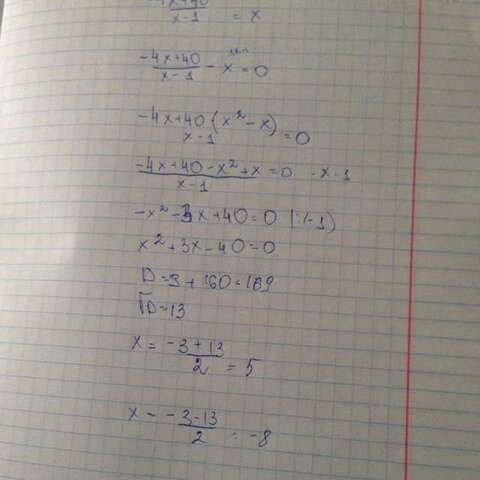 -4x+40 / x-1 = x
-4x+40 / x-1 - x = 0
-4x+40 (x² - x) / x-1 = 0
-4x+40-x²+x / x-1 = 0 ·x-1
-x² - 3x + 40 = 0 (:(-1)
x² + 3x - 40 = 0
D = 9 + 160 = 169
√D = 13
x = -3+13 / 2 = 5
x - -3-13 / 2 = -8